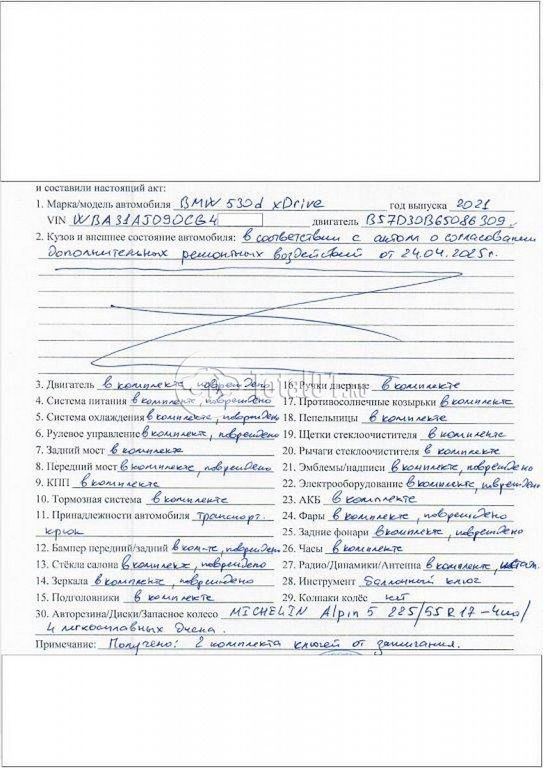 и составили настоящий акт:
1. Марка/модель автомобиля BMW 530d xDrive год выпуска 2021
VIN WBA31AJ090CG4 двигатель B57D30B65086309
2. Кузов и внешнее состояние автомобиля: в соответствии с актом о согласовании
дополнительных ремонтных воздействий от 24.04.2025г.
total01.ru
3. Двигатель в комплекте, повреждено 16. Ручки дверные в комплекте
4. Система питания в комплекте, повреждено 17. Противосолнечные козырьки в комплекте
5. Система охлаждения в комплекте, повреждено 18. Пепельницы в комплекте
6. Рулевое управление в комплекте, повреждено 19. Щетки стеклоочистителя в комплекте
7. Задний мост в комплекте 20. Рычаги стеклоочистителя в комплекте
8. Передний мост в комплекте, повреждено 21. Эмблемы/надписи в комплекте, повреждено
9. КПП в комплекте 22. Электрооборудование в комплекте, повреждено
10. Тормозная система в комплекте 23. АКБ в комплекте
11. Принадлежности автомобиля транспорт. 24. Фары в комплекте, повреждено
крюк 25. Задние фонари в комплекте, повреждено
12. Бампер передний/задний в ком-те, повреждено 26. Часы в комплекте
13. Стёкла салона в комплекте, повреждено 27. Радио/Динамики/Антенна в комплекте, штатн.
14. Зеркала в комплекте, повреждено 28. Инструмент баллонный ключ
15. Подголовники в комплекте 29. Колпаки колёс нет
30. Авторезина/Диски/Запасное колесо MICHELIN Alpin 5 225/55 R17 - 4шт/
4 легкосплавных диска.
Примечание: Получено: 2 комплекта ключей от зажигания.